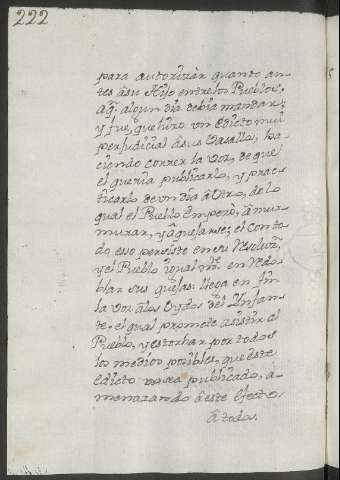 222
para autorizàr quanto an-
tes âsu Hijo entre los Pueblos,
âq̃. algun dia debia mandar;
y fue, que hizo un Edicto mui
perjudicial âsus Vasallos, ha-
ciendo correr la voz, de que
el queria publicarlo, y prac-
ticarlo de un dia â otro, de lo
qual el Pueblo empezò, â mur-
murar, y âquejarse; el con to-
do eso persiste en su resoluz.ⁿ
y el Pueblo igual m.ᵗᵉ en redo-
blar sus quejas: llega en fin
la voz âlos oydos del Infan-
te, el qual promete asistir al
Pueblo, y estorbar por todos
los medios posibles, que este
Edicto no sea publicado, a-
menazando â este efecto
â todos.